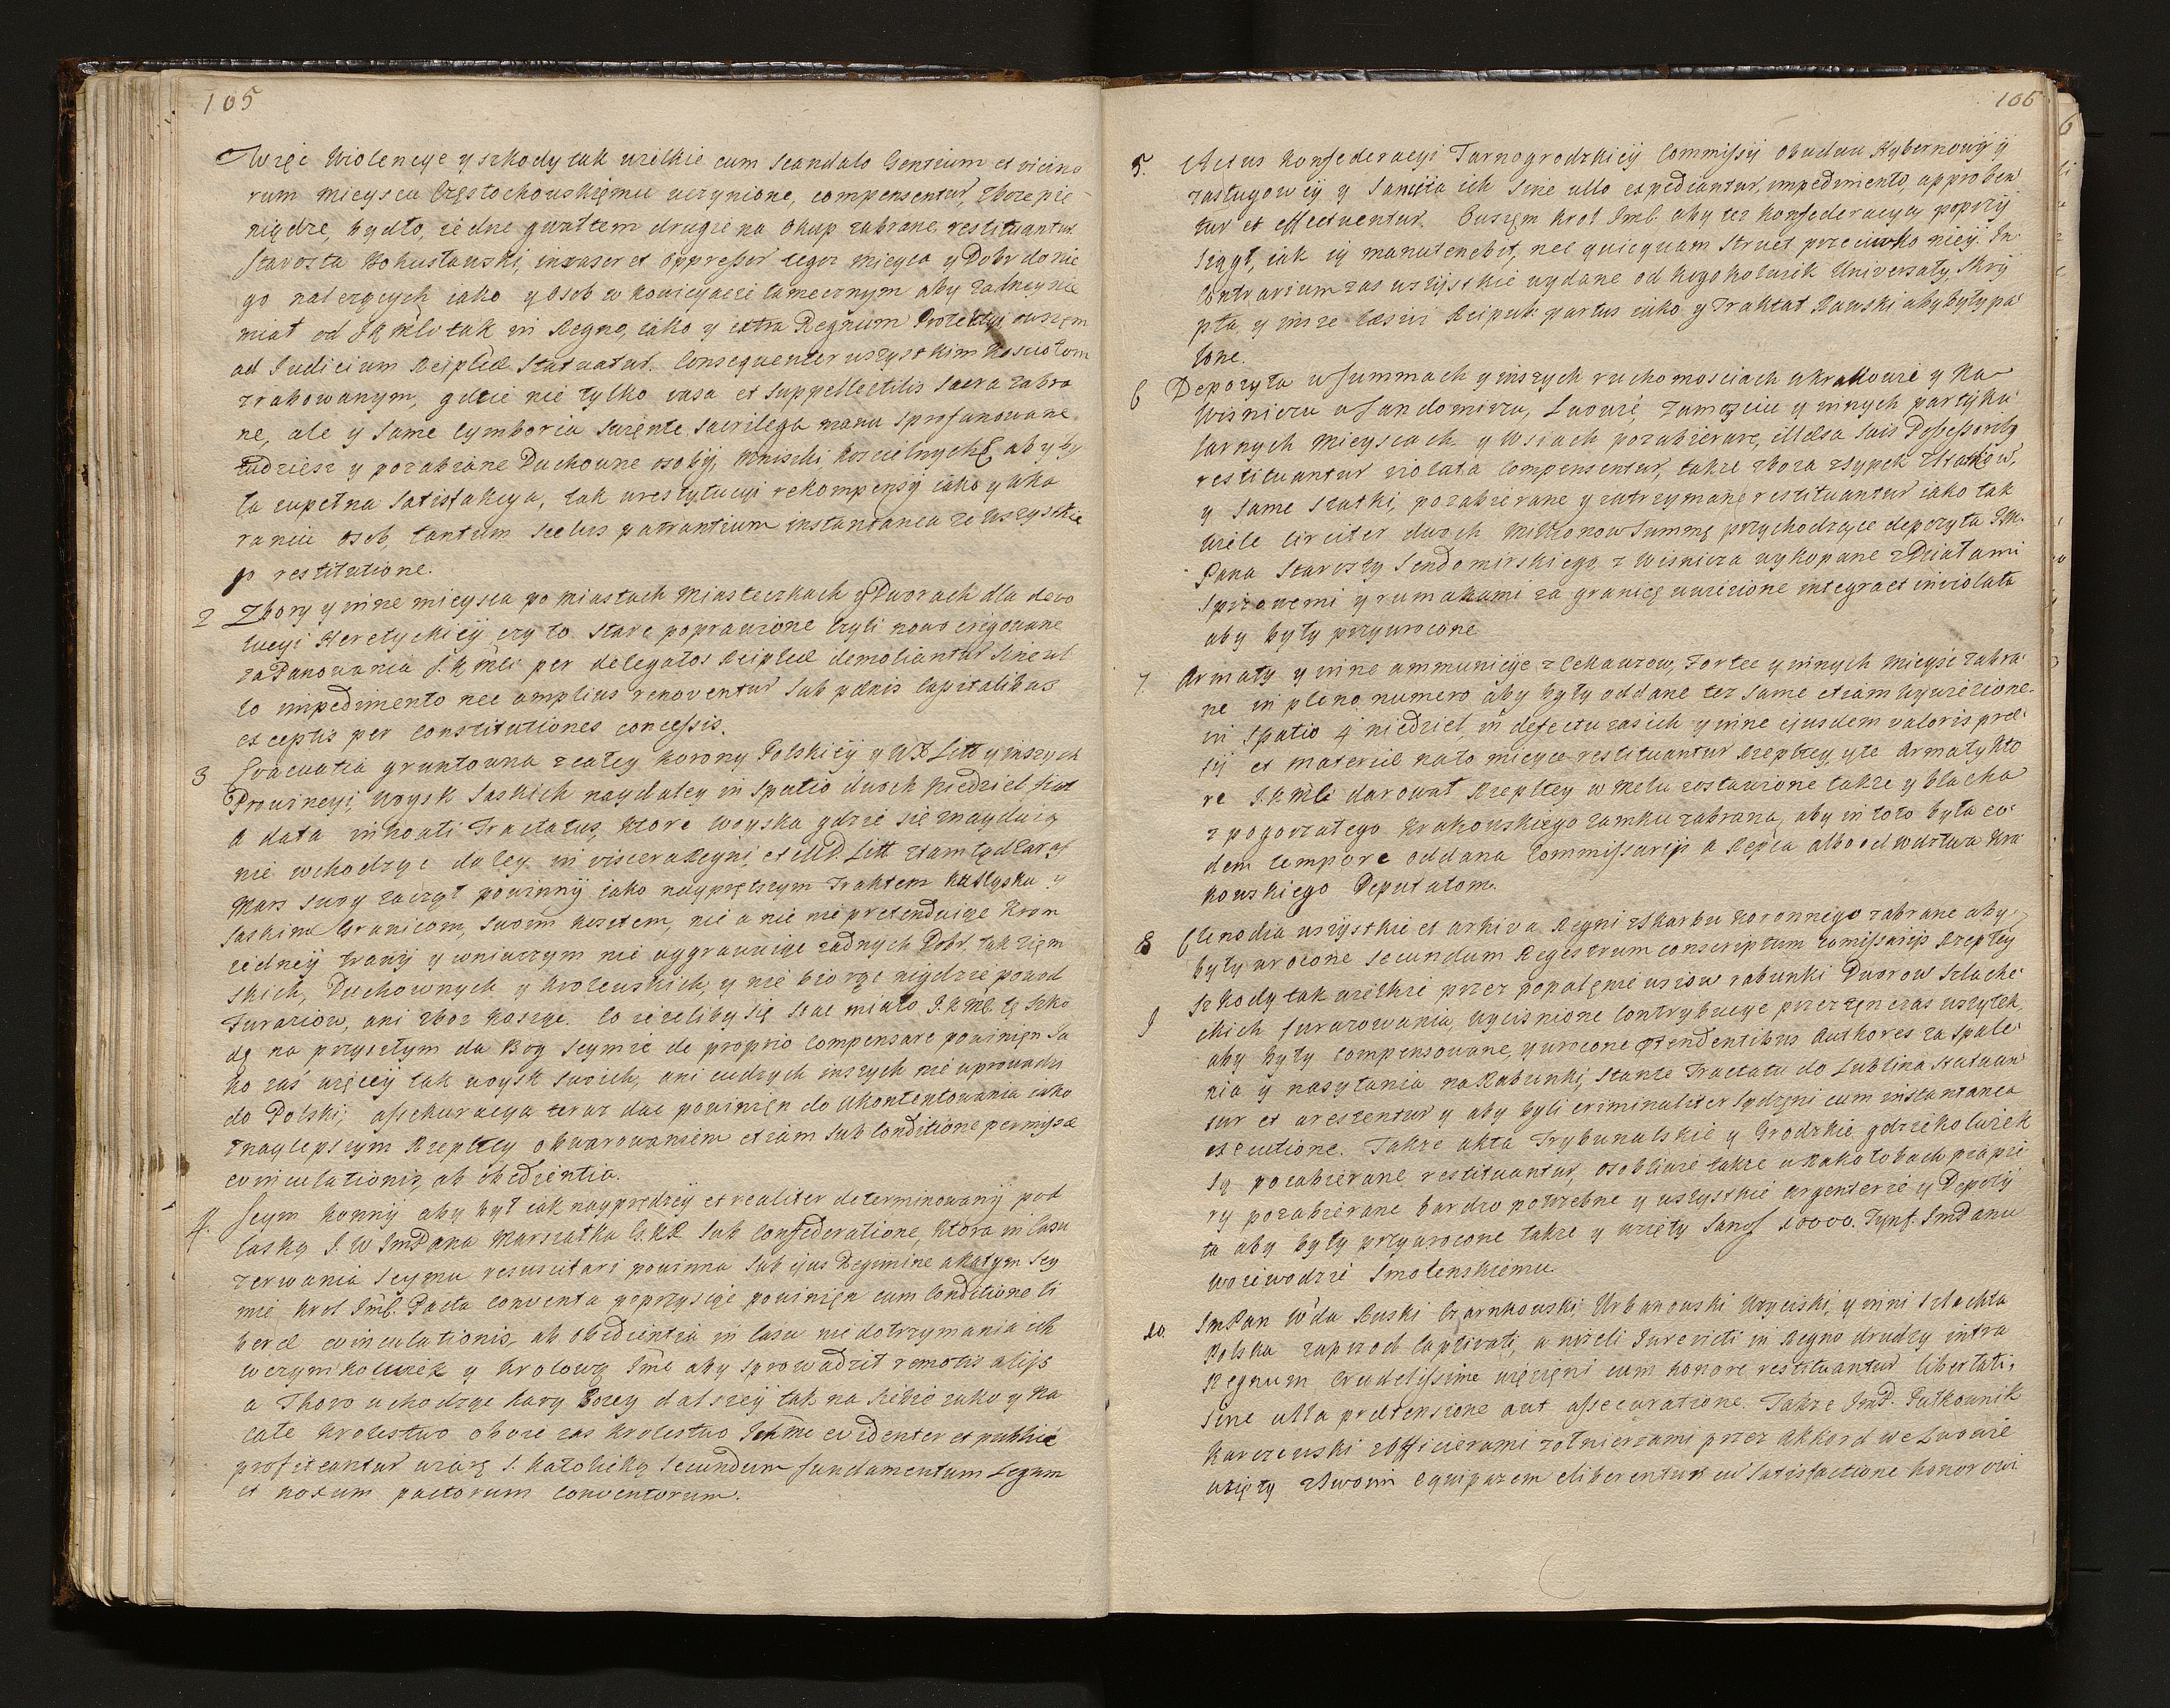 105
Więc Wiolencye y szkody tak wielkie cum scandalo Gentium et vicino
rum mieyscu Częstochowskięmu uczynione, compensentur, zboze pie
niędze, bydło, iedne gwałtem drugie na Okup zabrane restituantur
Starosta Bohusławski, invasor et oppressor tegoz mieysca y Dobr do nie
go nalezących iako y Osob w tamecznym aby zadney nie
miał od JKMści tak in Regno, iako y extra Regnum Protekcyi owszem
ad Judicium Reiplcæ Statuatur. Consequenter wszystkim Kosciołom
zrabowanym, gdzie nie tylko vasa et suppellectilis sacra zabra
ne, ale y same Cymboria swięte sacrilega manu sprofanowane
tudziesz y pozabiane Duchowne osoby, koscielnych aby by
ła zupełna Satisfakcya, tak w restytucyi rekompensy iako y uka
raniu osob, tantum scelus patrantium instantanea ze wszystkie
p restitutione.
2 Zbory y inne mieysca po Miastach Miasteczkach y Dworach dla devo
tucyi Heretyckiey czy to stare poprawione czyli nowo erigowane
za Panowania J.K.Mści per delegatos Reiplcæ demoliantur sine ul
lo impedimento nec amplius renoventur sub pænis Capitalibus
exceptis per Constitutiones concessis.
3 Evacuatia gruntowna z całey Korony Polskiey y WX Litt y inszych
Prowincyi, Woysk Saskich naydaley in spatio dwoch Niedziel fiat
a data inhoati Tractatus, ktore woyska gdzie się znayduią
nie wchodząc daley in viscera Regni, et MD. Litt ztamtąd zaraz
Mars swoy zacząć powinny iako nayprętszym Traktem ku Sląsku y
Saskim Granicom, swoim kosztem, nic a nic nie pretenduiąc kron
iedney trawy y w niwczym nie aggrawuiąc zadnych Dobr, tak Zięm
skich, Duchownych y Krolewskich, y nie biorąc nigdzie powod
Furaziow, ani zboz kosząc. Co iezeliby się stac miało J.K.Mć. tę szko
dę na przyszłym da Bog Seymie de proprio Compensare powinięn Ja
ko zaś więcey tak woysk swoich, ani cudzych inszych nie uprowadzi
do Polski, assekuracya teraz dac powinięn do Ukontentowania iako
znaylepszym Rzepltey obwarowaniem etiam sub Conditione permissæ
evinculationis, ab obedientia.
4. Seym konny aby był iak nayprędzey et realiter determinowany pod
laską J.W ImPana Marszałka G.KR sub Confederatione, ktora in Casu
zerwania Seymu resuscitari powinna sub ejus Regimine a na tym Sey
mie Krol Imć. Pacta Conventa poprzysiąc powinięn cum Conditione li
beræ evinculationis, ab obedientia in Casu niedotrzymania ich
w czymkolwiek y Krolową Imć aby sprowadził remotis alijs
a Thoro uchodząc kary Bozey dalszey tak na siebie iako y na
całe krolestwo oboie zas krolestwo Ichmć evidenter et publicæ
profiteantur wiarę S. Katolicką secundum fundamentum Legum
et noxum pactorum Conventorum.
106
5. Actus Konfederacyi Tarnogrodzkiey Commissÿ Obudwu Hybernowy y
zasługowey y Sancita ich sine ullo expediantur, impedimento, approben
tur et effectuentur. Owszem Krol Imć. aby tez Konfederacyą poprzy
siągł, iak ią manutenebit, nec quicquam struet przeciwko niey. In
Contrarium zas wszystkie wydane od kogokolwiek Uniwersały, Skryp
pta, y insze læsis Reipub: partus iako y Traktat Rawski aby były pa
lone.
6 Depozyta w Summach y inszych ruchomosciach w Krakowie y Na
Wisniczu w Sandomirzu, Lwowie, Zamosciu y innych partyku
larnych mieyscach y Wsiach pozabierane, illæsa suis Possessoribq
restituantur violata Compensentur, takze zboza zsypek zstatkow,
y same statki, pozabierane y zatrzymane restituantur iako tak
wiele circiter dwoch Millionow Summę przychodzące depozyta JM.
Pana Starosty Sendomirskiego, z Wisnicza wykopane z Działami
Spizowemi y rumakami za granicę uwiezione integra et inviolata
aby były przywrocone
7. Armaty y inne ammunicye z Cekauzow, Fortec y innych mieysc zabra
ne in pleno numero aby były oddane tez same etiam wywiezione
in spatio 4 niedziel, in defectu zas ich y inne ejusdem valoris præ
tij et materiæ na to mieysce restituantur Rzepltey, y te Armaty kto
re J.K.Mść darował Rzepltey w Melu zostawione takze y blacha
z pogorzałego Krakowskiego zamku zabrana, aby in toto była eo
dem tempore oddana Commissarijs a Repca albo od Wdztwa Kra
kowskiego Deputatom.
8 Clenodia wszystkie et arkiva Regni z Skarbu Koronnego zabrane aby
były wrocone secundum Regestrum conscriptum Comissarijs Rzepltey
9 Szkody tak wielkie przez popalęnie wsiow rabunki Dworow Szlache
ckich furazowania, wycisnione Contrybucye przez tęn czas wszytek,
aby były Compensowane, y wrocone ptendentibus Authores za spale
nia y nasyłania na Rabunki, stante Tractatu do Lublina statuan
tur et arestentur y aby byli criminaliter sądzęni cum instantanea
executione. Takze akta Trybunalskie y Grodzkie gdziekolwiek
są pozabierane restituantur, osobliwie takze w Rakołobach pa papie
ry pozabierane bardzo potrzebne y wszystkie argenterie y Depozy
ta aby były przywrocone takze y wzięty 10000. Tynf. ImPanu
Woiewodzie Smolenskiemu.
10. ImPan Wda Ruski Czarnkowski, Urbanowski Uzyciski, y inni Szlachta
Polska zaprzod Captivati, a nizeli Jure victi in Regno drudzy intra
Regnum Crudelissime więzięni cum honore restituantur libertati,
sine ulla prætensione aut assecuratione. Takze ImP. Pułkownik
Karczewski z Officierami zołnierzami przez Akkord we Lwowie
wzięty z Swoim equipazem eliberentur cu satisfactione honorowi